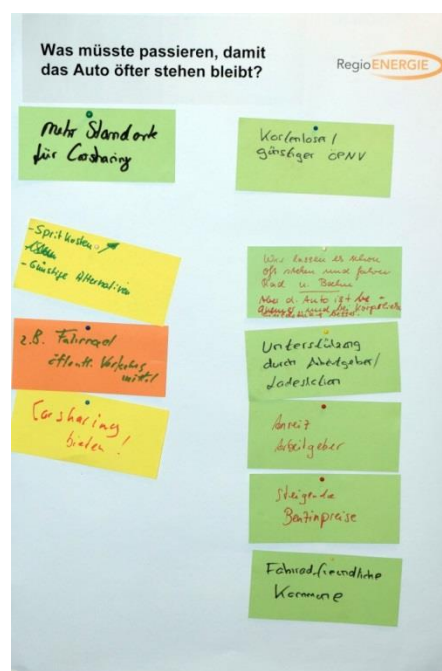 Was müsste passieren, damit
das Auto öfter stehen bleibt?
RegioENERGIE
Mehr Standorte
für Carsharing
Kostenloser/
günstiger ÖPNV
- Spritkosten
- Günstige Alternativen
z.B. Fahrrad
öffentl. Verkehrs
mittel
Carsharing
bieten!
Wir lassen es schon
oft stehen und fahren
Rad u. Bahn
Unterstützung
durch Arbeitgeber/
Ladestation
Anreiz
Arbeitgeber
Steigende
Benzinpreise
Fahrradfreundliche
Kommune